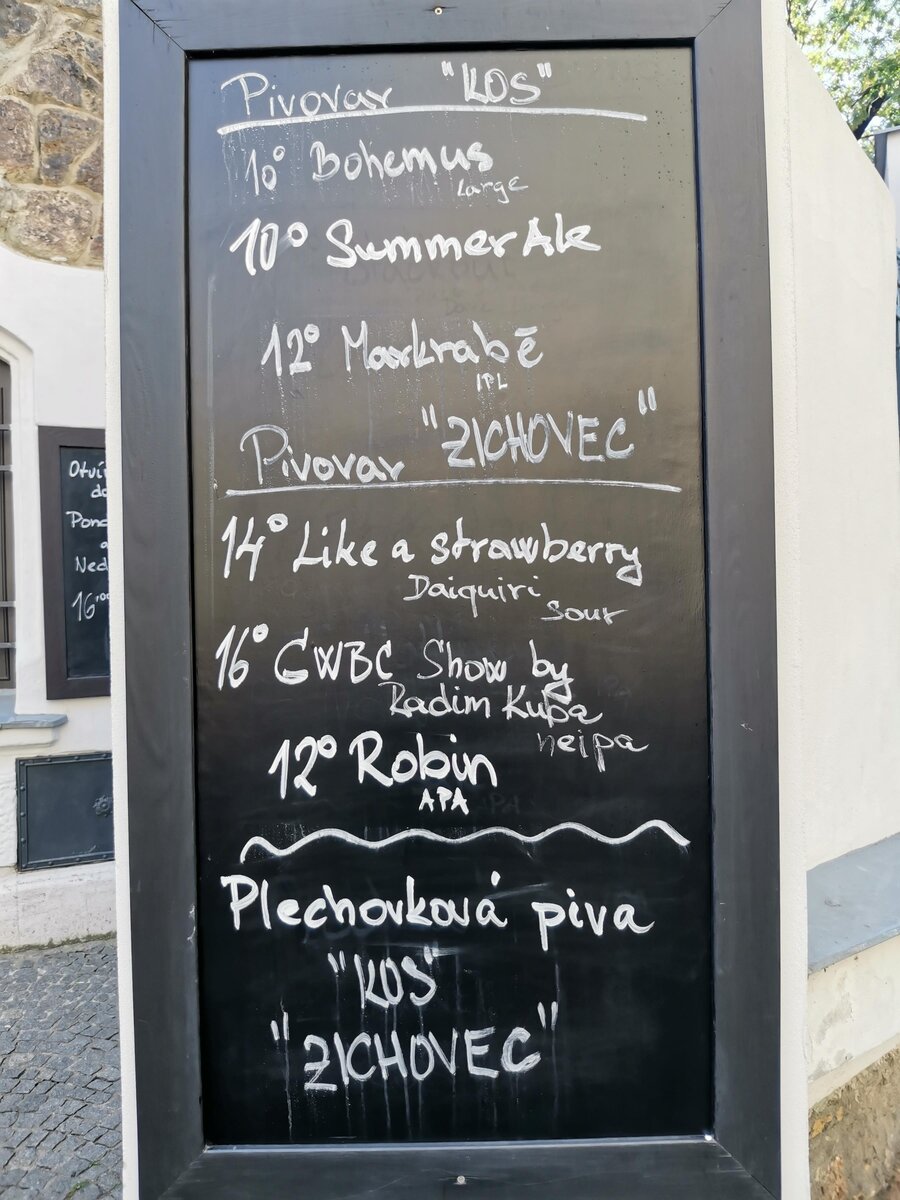 Pivovar "KOS"
10° Bohemus
Large
10° Summer Ale
12° Markrabě
IPL
Pivovar "ZICHOVEC"
14° Like a strawberry
Daiquiri
Sour
16° GWBC Show by
Radim Kuba
neipa
12° Robin
APA
Plechovková piva
"KOS"
"ZICHOVEC"
Otví
do
Pond
a
Ned
16,00